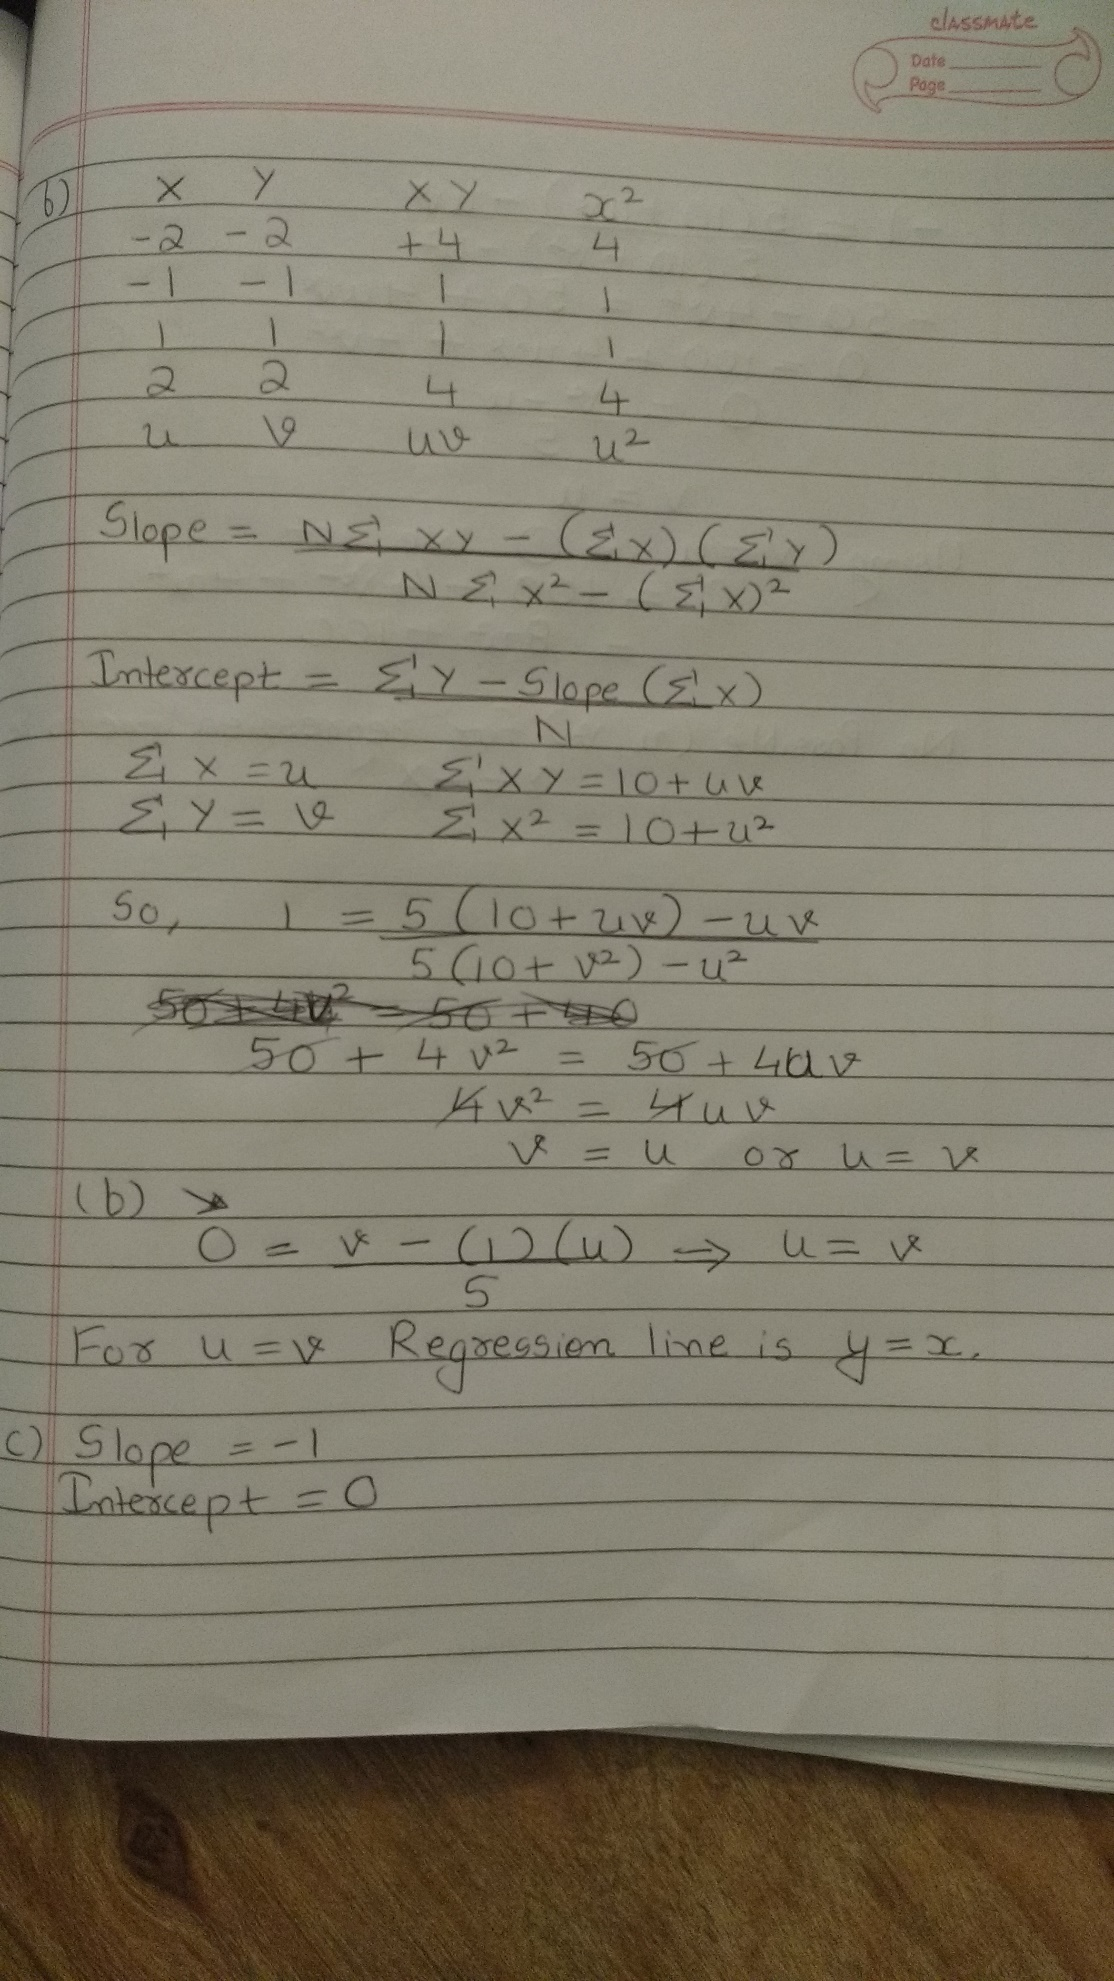 classmate
Date
Page
b) X Y XY x²
-2 -2 +4 4
-1 -1 1 1
1 1 1 1
2 2 4 4
u v uv u²
Slope = NΣXY - (ΣX)(ΣY)
NΣX² - (ΣX)²
Intercept = ΣY - Slope (ΣX)
N
ΣX = u ΣXY = 10 + uv
ΣY = v ΣX² = 10 + u²
So, 1 = 5(10 + uv) - uv
5(10 + v²) - u²
50 + 4v² = 50 + 4uv
4v² = 4uv
v = u or u = v
(b)
0 = v - (1)(u) ⇒ u = v
5
For u = v Regression line is y = x.
c) Slope = -1
Intercept = 0